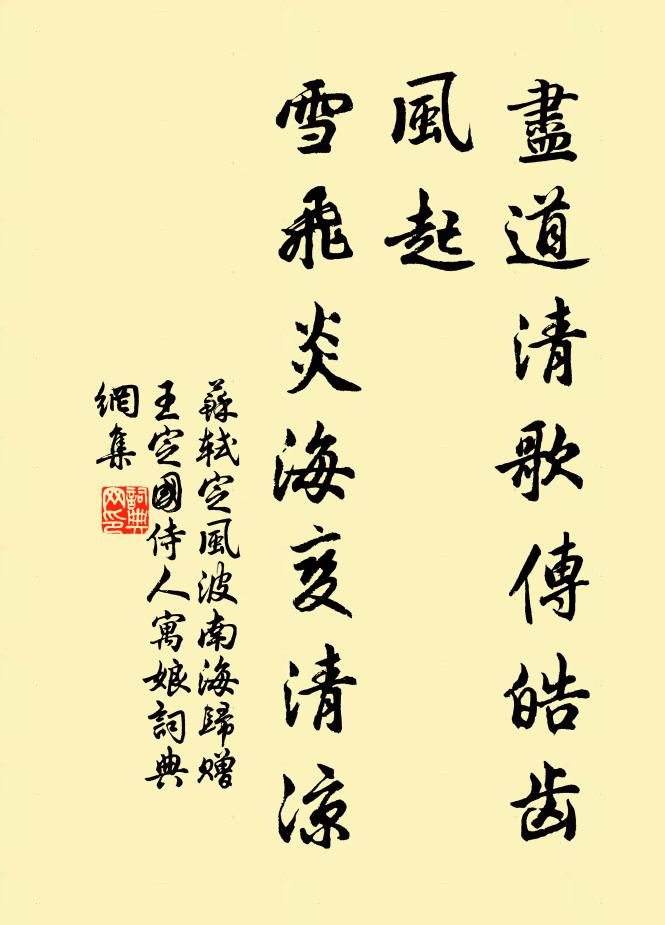 盡道清歌傳皓齒
風起
雪飛炎海變清涼
蘇軾定風波南海歸贈
王定國侍人寓娘詞典
網集
詞典
网印